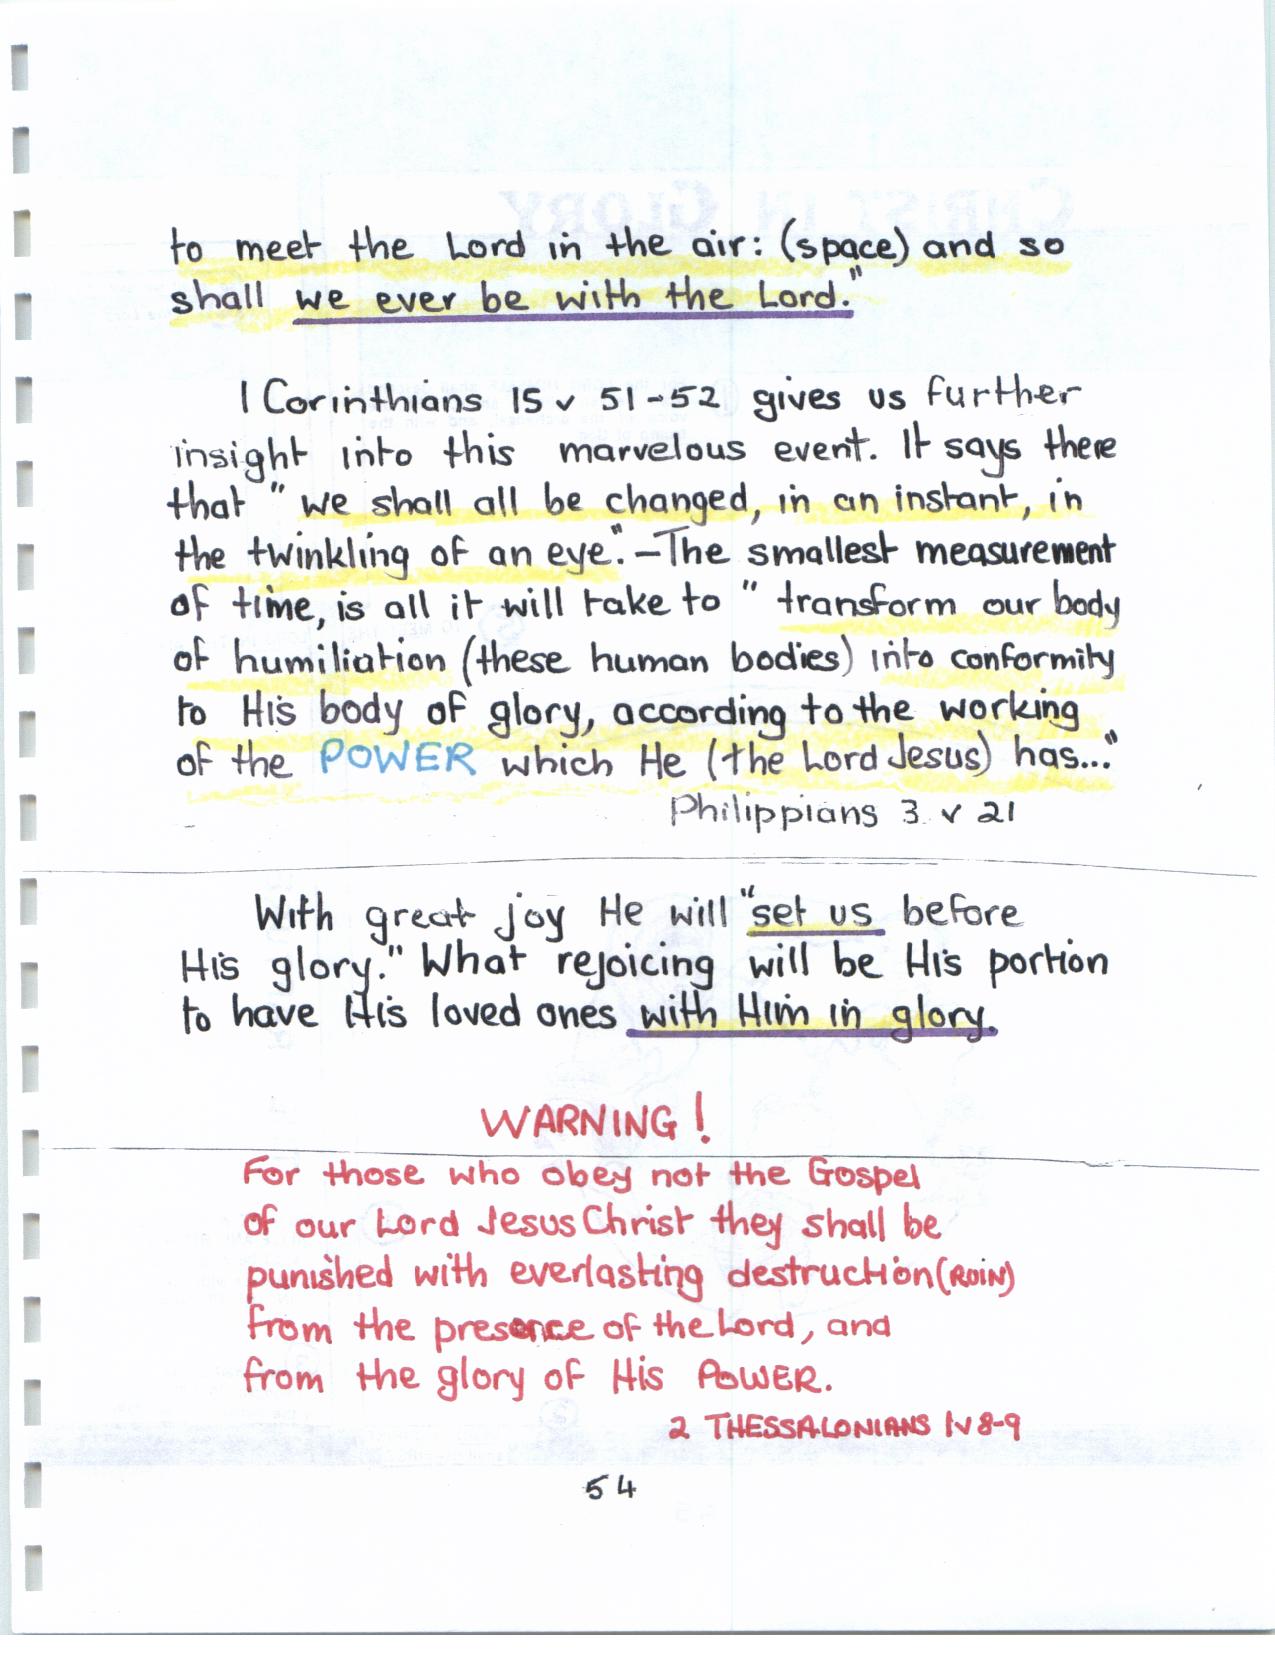 to meet the Lord in the air: (space) and so
shall we ever be with the Lord."
1 Corinthians 15 v 51-52 gives us further
insight into this marvelous event. It says there
that "we shall all be changed, in an instant, in
the twinkling of an eye". - The smallest measurement
of time, is all it will take to "transform our body
of humiliation (these human bodies) into conformity
to His body of glory, according to the working
of the POWER which He (the Lord Jesus) has..."
Philippians 3 v 21
With great joy He will "set us before
His glory." What rejoicing will be His portion
to have His loved ones with Him in glory.
WARNING!
For those who obey not the Gospel
of our Lord Jesus Christ they shall be
punished with everlasting destruction (RUIN)
from the presence of the Lord, and
from the glory of His POWER.
2 THESSALONIANS 1 v 8-9
54
CHRIST IN GLORY